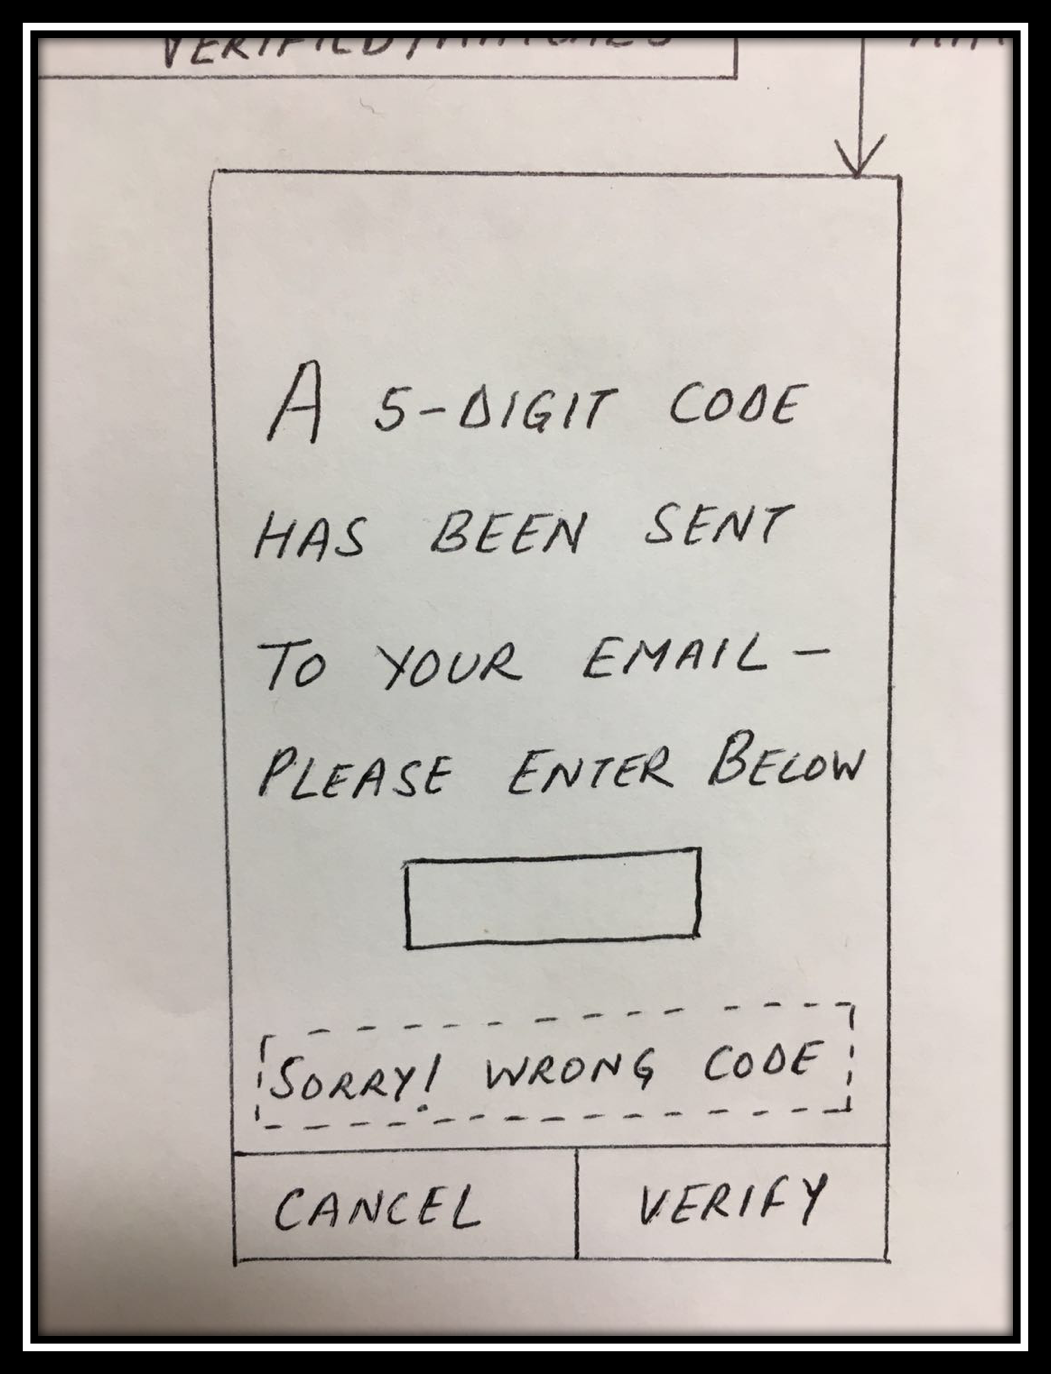 A 5-DIGIT CODE
HAS BEEN SENT
TO YOUR EMAIL -
PLEASE ENTER BELOW
SORRY! WRONG CODE
CANCEL VERIFY